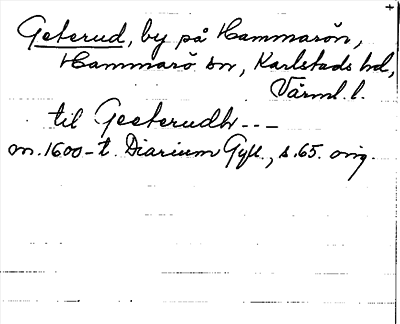 Geterud, by på Hammarön,
Hammarö sn, Karlstads hd,
Värml. l.
til Geeterudh - - -
m. 1600-t. Diarium Gyll., s. 65. orig.